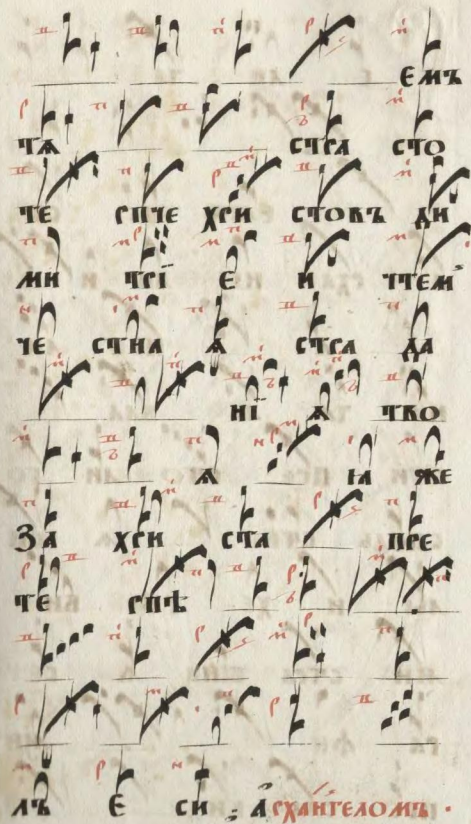 ЕМЪ
ТѦ СТРА СТО
ТЕ РПЧЕ ХРИ СТОВЪ ДИ
МИ ТРЇ Е И ЧТЕМ
ЧЕ СТНА Ѧ СТРА ДА
НЇ Ѧ ТВО
Ѧ ІА ЖЕ
ЗА ХРИ СТА ПРЕ
ТЕ РПѢ
ЛЪ Е СИ : АРХАНГЕЛОМЪ ·